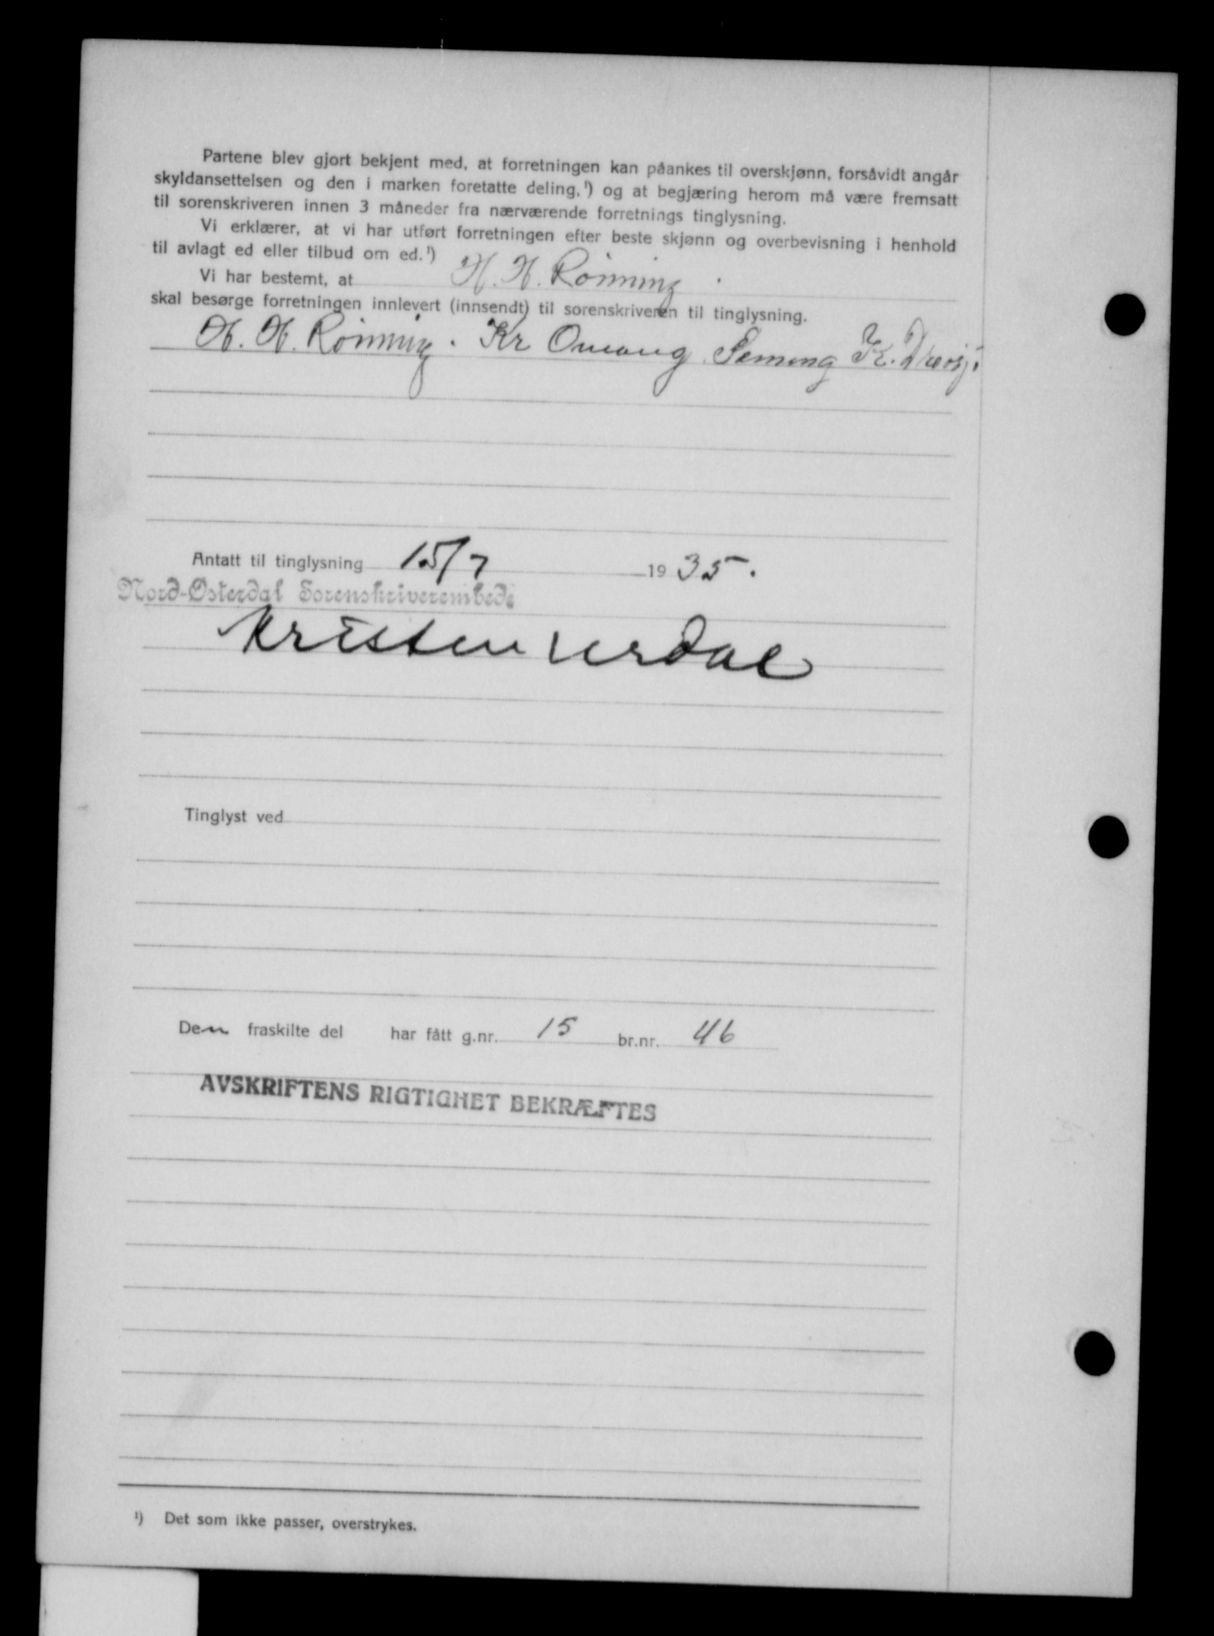 Partene blev gjort bekjent med, at forretningen kan påankes til overskjønn, forsåvidt angår
skyldansettelsen og den i marken foretatte deling,¹) og at begjæring herom må være fremsatt
til sorenskriveren innen 3 måneder fra nærværende forretnings tinglysning.
Vi erklærer, at vi har utført forretningen efter beste skjønn og overbevisning i henhold
til avlagt ed eller tilbud om ed.¹)
Vi har bestemt, at H. H. Rönning
skal besørge forretningen innlevert (innsendt) til sorenskriveren til tinglysning.
H. H. Rönning. Kr OmangSeming K.
Antatt til tinglysning 15/7 1935.
Nord-Østerdal Sorenskriverembede
Kristen
Tinglyst ved
Den fraskilte del har fått g.nr. 15 br.nr. 46
AVSKRIFTENS RIGTIGHET BEKRÆFTES
¹) Det som ikke passer, overstrykes.